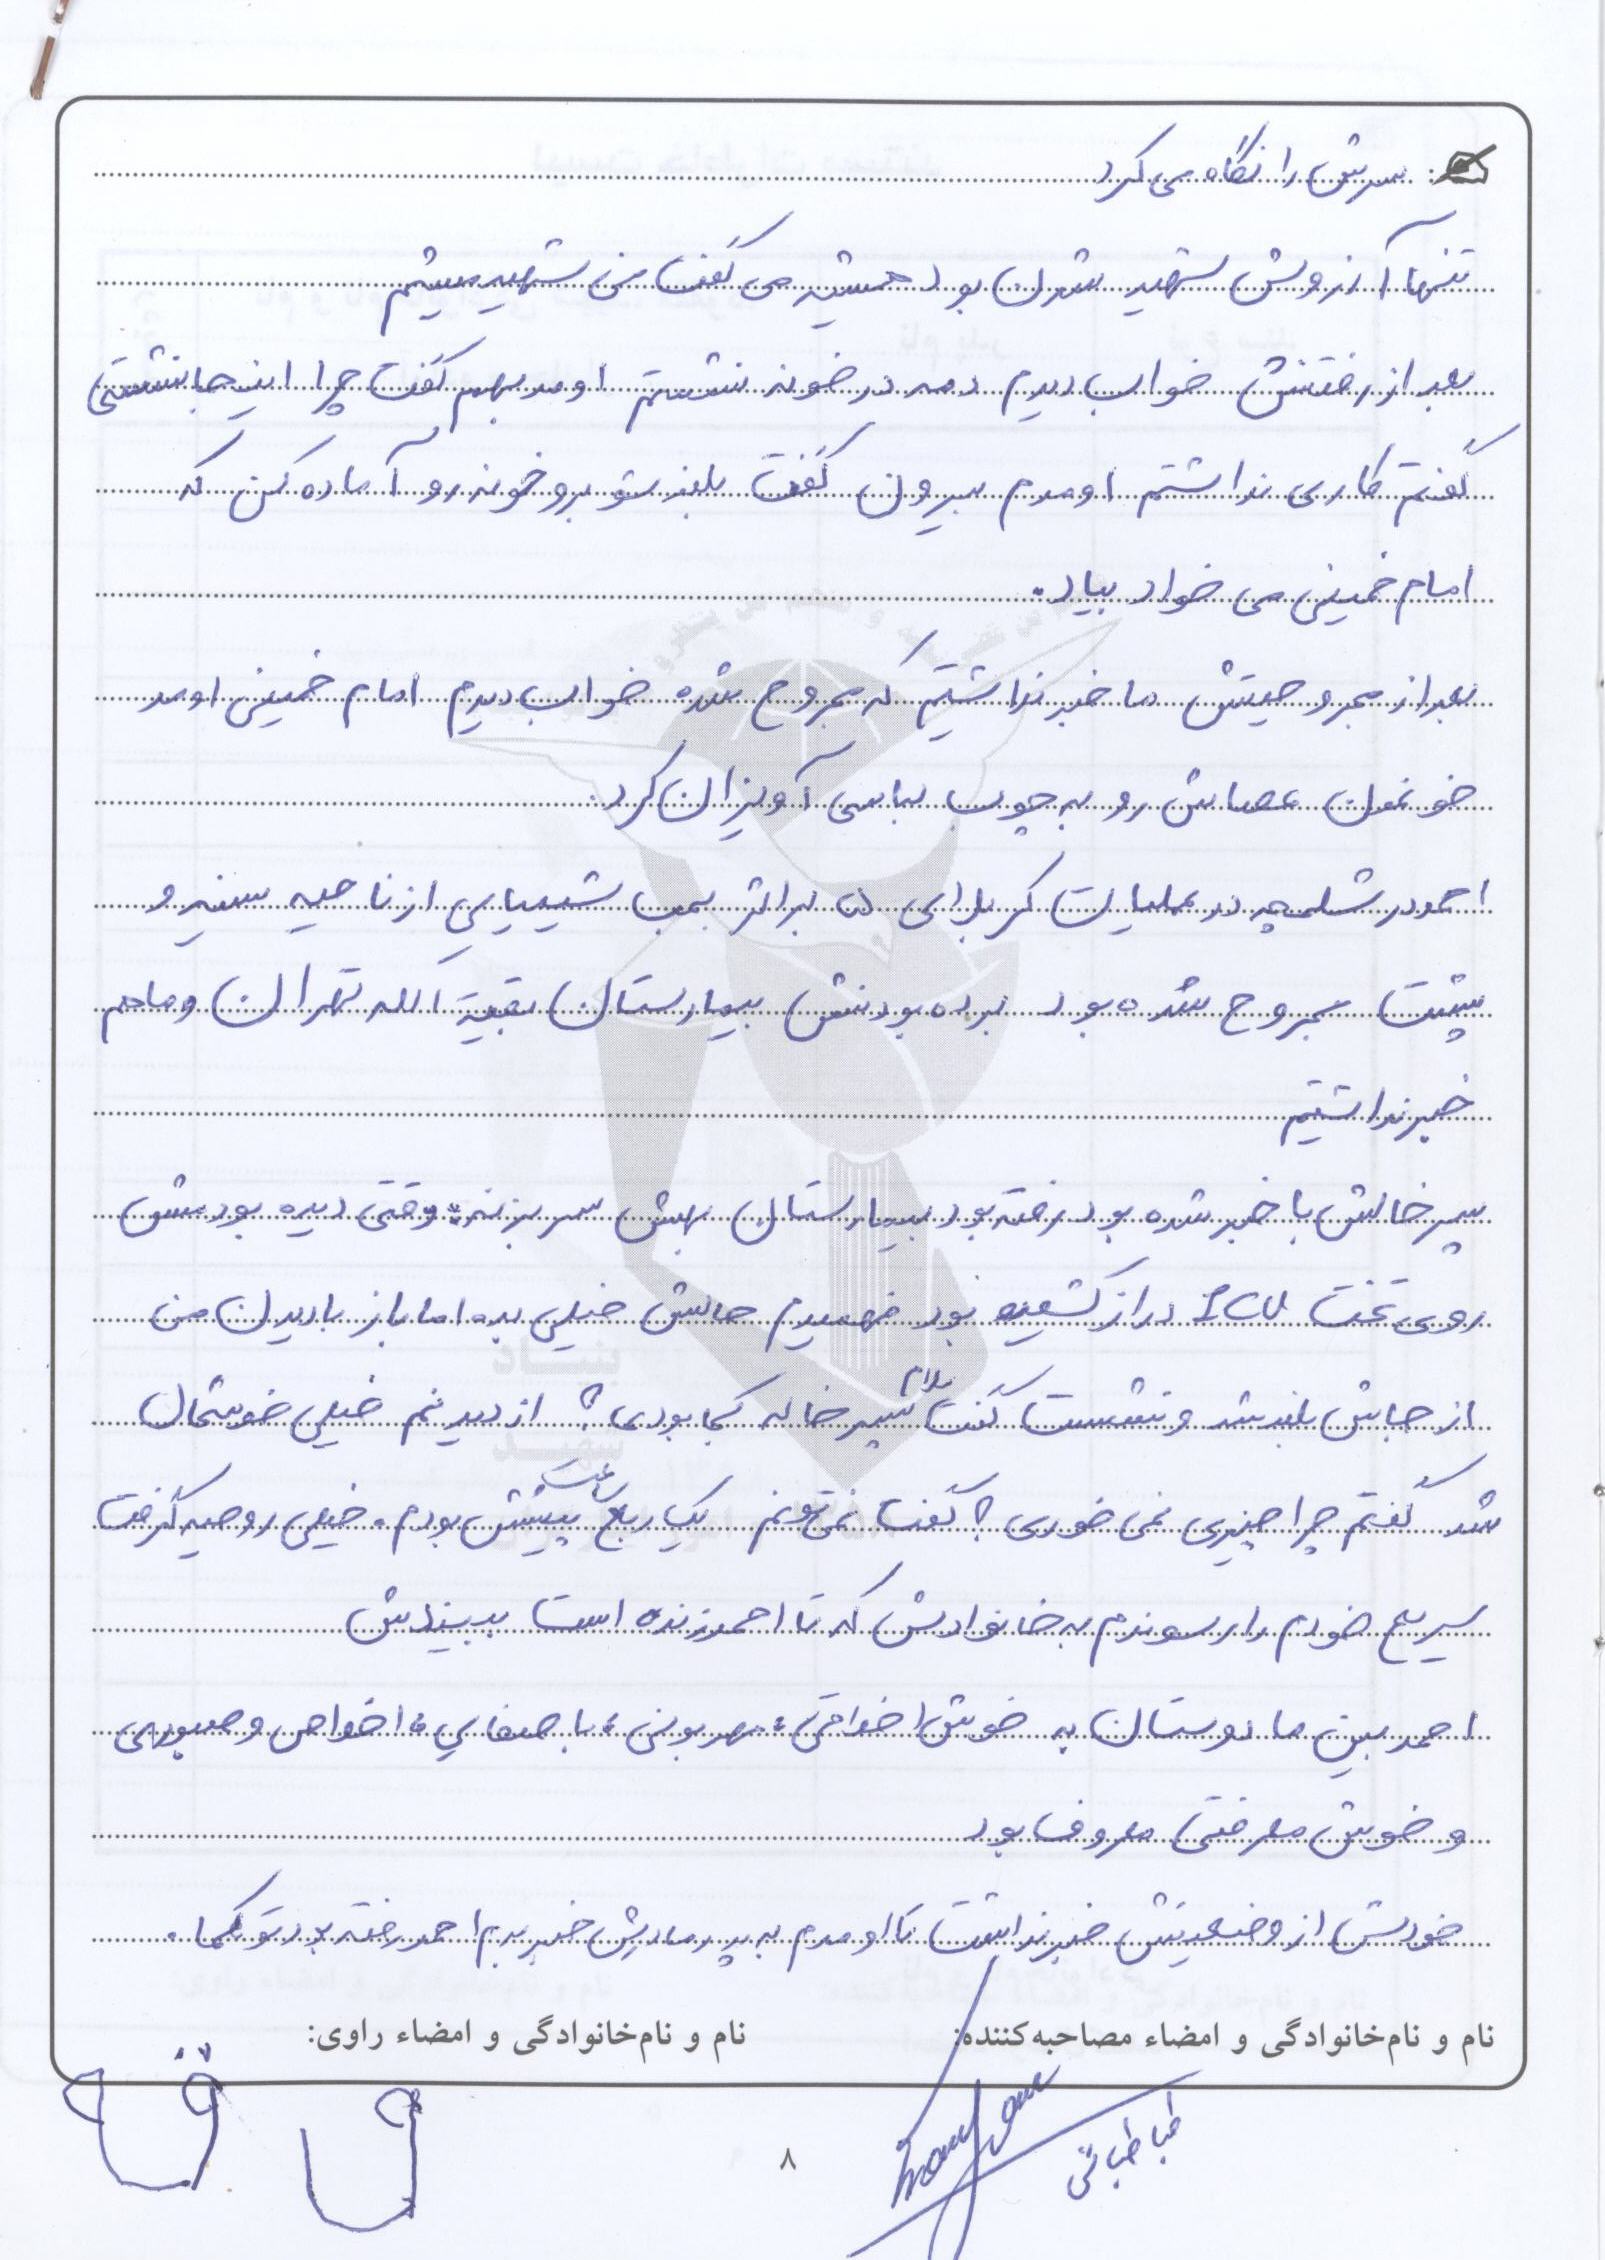 سرش را نگاه می کرد
تنها آرزوش شهید شدن بود همیشه می گفت من شهید میشم
بعد از رفتنش خواب دیدم دمه در خونه نشستم اومد بهم گفت چرا اینجا نشستی
گفتم کاری نداشتم اومدم بیرون گفت بلند شو برو خونه رو آماده کن که
امام خمینی می خواد بیاد.
بعد از مجروحیتش ما خبر نداشتیم که مجروح شده خواب دیدم امام خمینی اومد
خونمون عصاش رو به چوب لباسی آویزان کرد.
احمد در شلمچه در عملیات کربلای ۵ بر اثر بمب شیمیایی از ناحیه سینه و
پشت مجروح شده بود برده بودنش بیمارستان بقیة الله تهران و ما هم
خبر نداشتیم
پسر خالش با خبر شده بود رفته بود بیمارستان بهش سر بزنه وقتی دیده بودمش
روی تخت ICU دراز کشیده بود فهمیدم حالش خیلی بده اما باز با دیدن من
از جاش بلند شد و نشست گفت سلام پسر خاله کجا بودی؟ از دیدنم خیلی خوشحال
شد گفتم چرا چیزی نمی خوری؟ گفت نمی تونم یک ربع ساعت پیشش بودم. خیلی روحیه گرفت
سریع خودم را رسوندم به خانوادش که تا احمد زنده است ببیندش
احمد بین ما دوستان به خوش اخلاقی، مهربونی، با صفایی، اخلاص و صبوری
و خوش معرفتی معروف بود
خودش از وضعیتش خبر نداشت تا اومدم به پدر مادرش خبر بدم احمد رفته بود تو کما.
نام و نام‌خانوادگی و امضاء مصاحبه‌کننده: نام و نام‌خانوادگی و امضاء راوی:
طباطبائی
۸